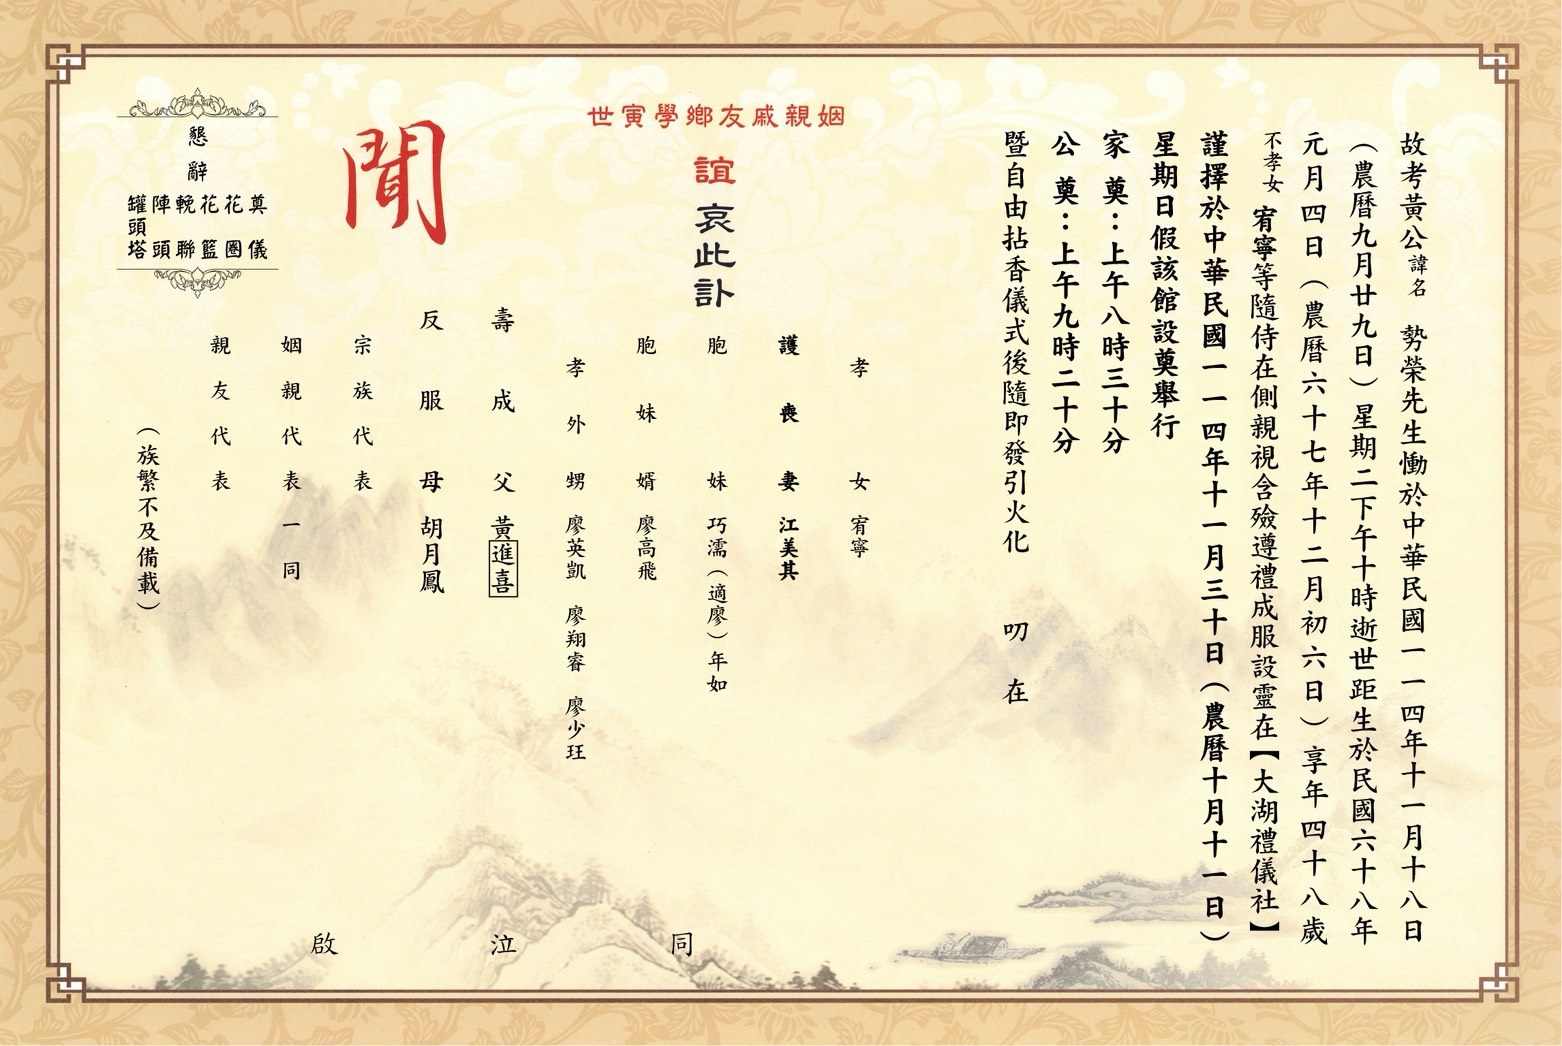 故考黃公諱名 勢榮先生慟於中華民國一一四年十一月十八日
（農曆九月廿九日）星期二下午十時逝世距生於民國六十八年
元月四日（農曆六十七年十二月初六日）享年四十八歲
不孝女 宥寧等隨侍在側親視含殮遵禮成服設靈在【大湖禮儀社】
謹擇於中華民國一一四年十一月三十日（農曆十月十一日）
星期日假該館設奠舉行
家奠：上午八時三十分
公奠：上午九時二十分
暨自由拈香儀式後隨即發引火化 叨在
姻親戚友鄉學寅世
誼哀此訃
聞
孝女 宥寧
護喪妻 江美其
胞妹 巧濡（適廖）年如
胞妹婿 廖高飛
孝外甥 廖英凱 廖翔睿 廖少玨
壽成父 黃進喜
反服母 胡月鳳
宗族代表
姻親代表一同
親友代表
（族繁不及備載）
同泣啟
懇辭
奠儀
花圈
花籃
輓聯
陣頭
罐頭塔